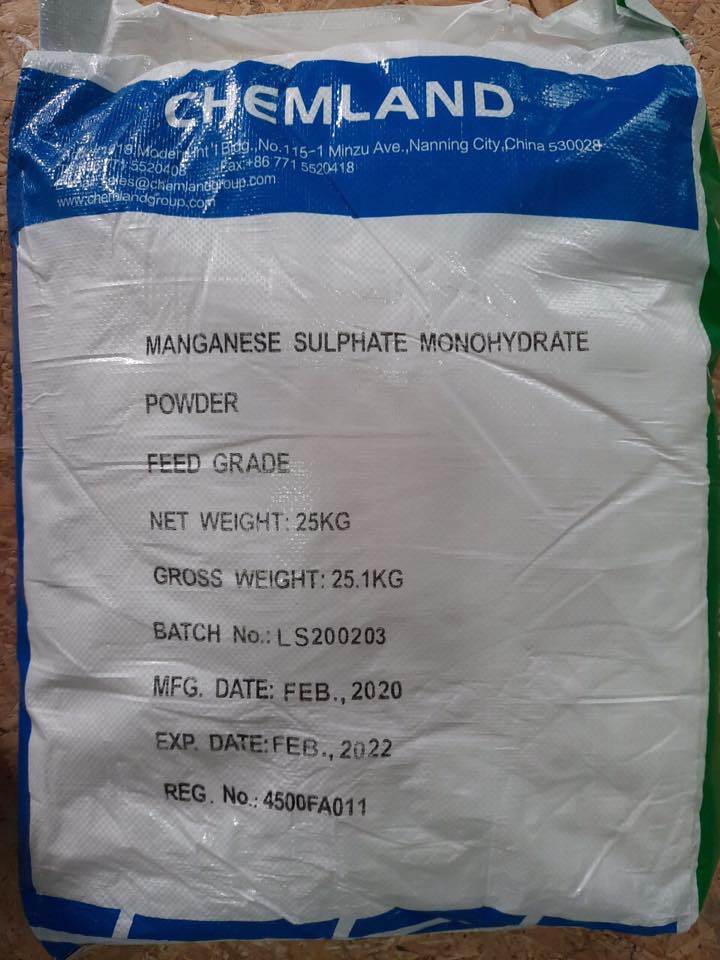 CHEMLAND
Modern Int'l Bldg.,No.115-1 Minzu Ave.,Nanning City,China 530028
5520408 Fax:+86 771 5520418
sales@chemlandgroup.com
www.chemlandgroup.com
MANGANESE SULPHATE MONOHYDRATE
POWDER
FEED GRADE
NET WEIGHT: 25KG
GROSS WEIGHT: 25.1KG
BATCH No.: LS200203
MFG. DATE: FEB., 2020
EXP. DATE: FEB., 2022
REG. No.: 4500FA011